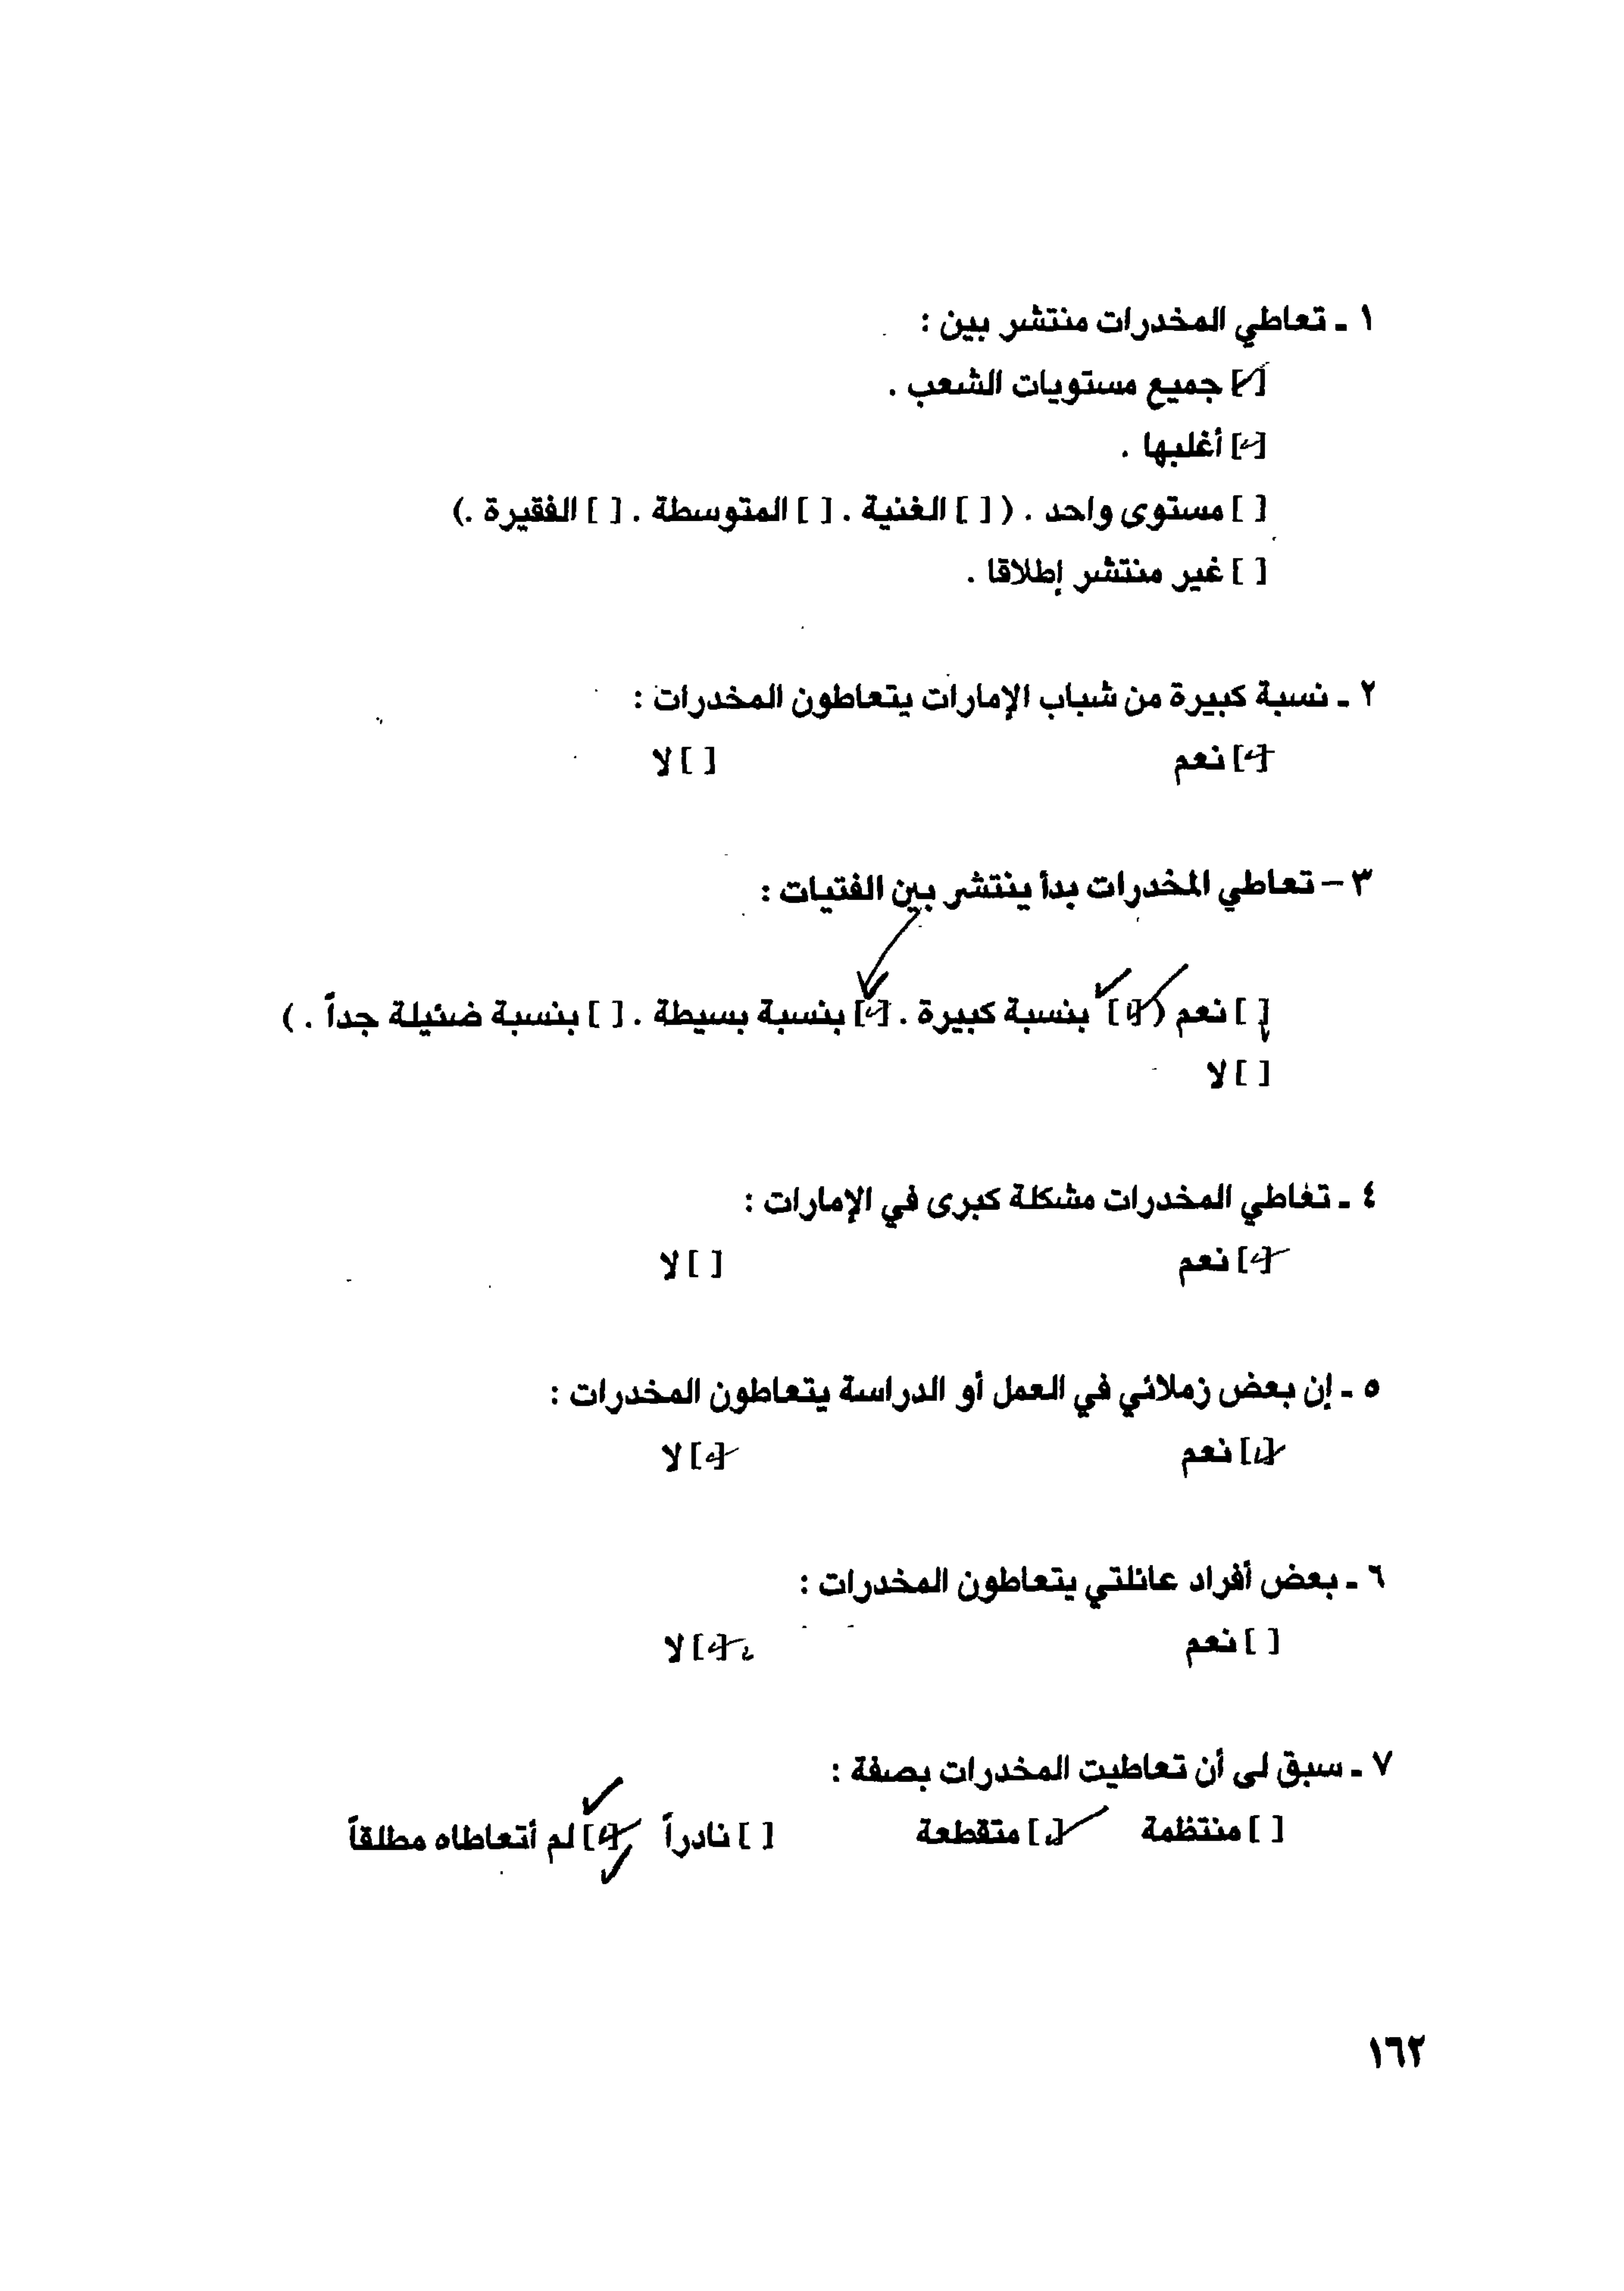 ١ ـ تعاطي المخدرات منتشر بين :
[✓] جميع مستويات الشعب .
[✓] أغلبها .
[ ] مستوى واحد . ( [ ] الغنية . [ ] المتوسطة . [ ] الفقيرة .)
[ ] غير منتشر إطلاقا .
٢ ـ نسبة كبيرة من شباب الإمارات يتعاطون المخدرات :
[✓] نعم [ ] لا
٣ – تعاطي المخدرات بدأ ينتشر بين الفتيات :
[ ] نعم ( [✓] بنسبة كبيرة . [✓] بنسبة بسيطة . [ ] بنسبة ضئيلة جداً . )
[ ] لا
٤ ـ تغاطي المخدرات مشكلة كبرى في الإمارات :
[✓] نعم [ ] لا
٥ ـ إن بعض زملائي في العمل أو الدراسة يتعاطون المخدرات :
[✓] نعم [✓] لا
٦ ـ بعض أفراد عائلتي يتعاطون المخدرات :
[ ] نعم [✓] لا
٧ ـ سبق لى أن تعاطيت المخدرات بصفة :
[ ] منتظمة [✓] متقطعة [ ] نادراً [✓] لم أتعاطاه مطلقاً
١٦٢